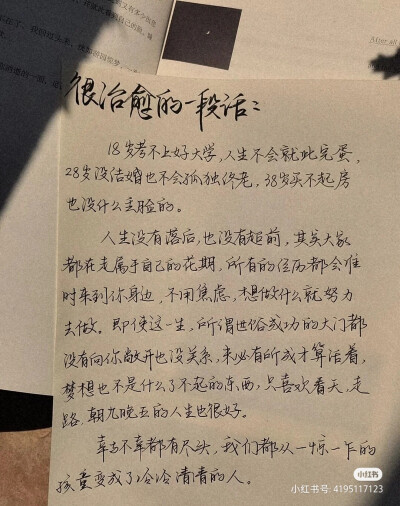 很治愈的一段话：
18岁考不上好大学，人生不会就此完蛋，
28岁没结婚也不会孤独终老，38岁买不起房
也没什么丢脸的。
人生没有落后，也没有超前，其实大家
都在走属于自己的花期，所有的经历都会准
时来到你身边，不用焦虑，想做什么就努力
去做。即使这一生，所谓世俗成功的大门都
没有向你敞开也没关系，未必有所成才算活着，
梦想也不是什么了不起的东西，只喜欢看天，走
路，朝九晚五的人生也很好。
幸与不幸都有尽头，我们都从一惊一乍的
孩童变成了冷冷清清的人。
小红书
小红书号：4195117123